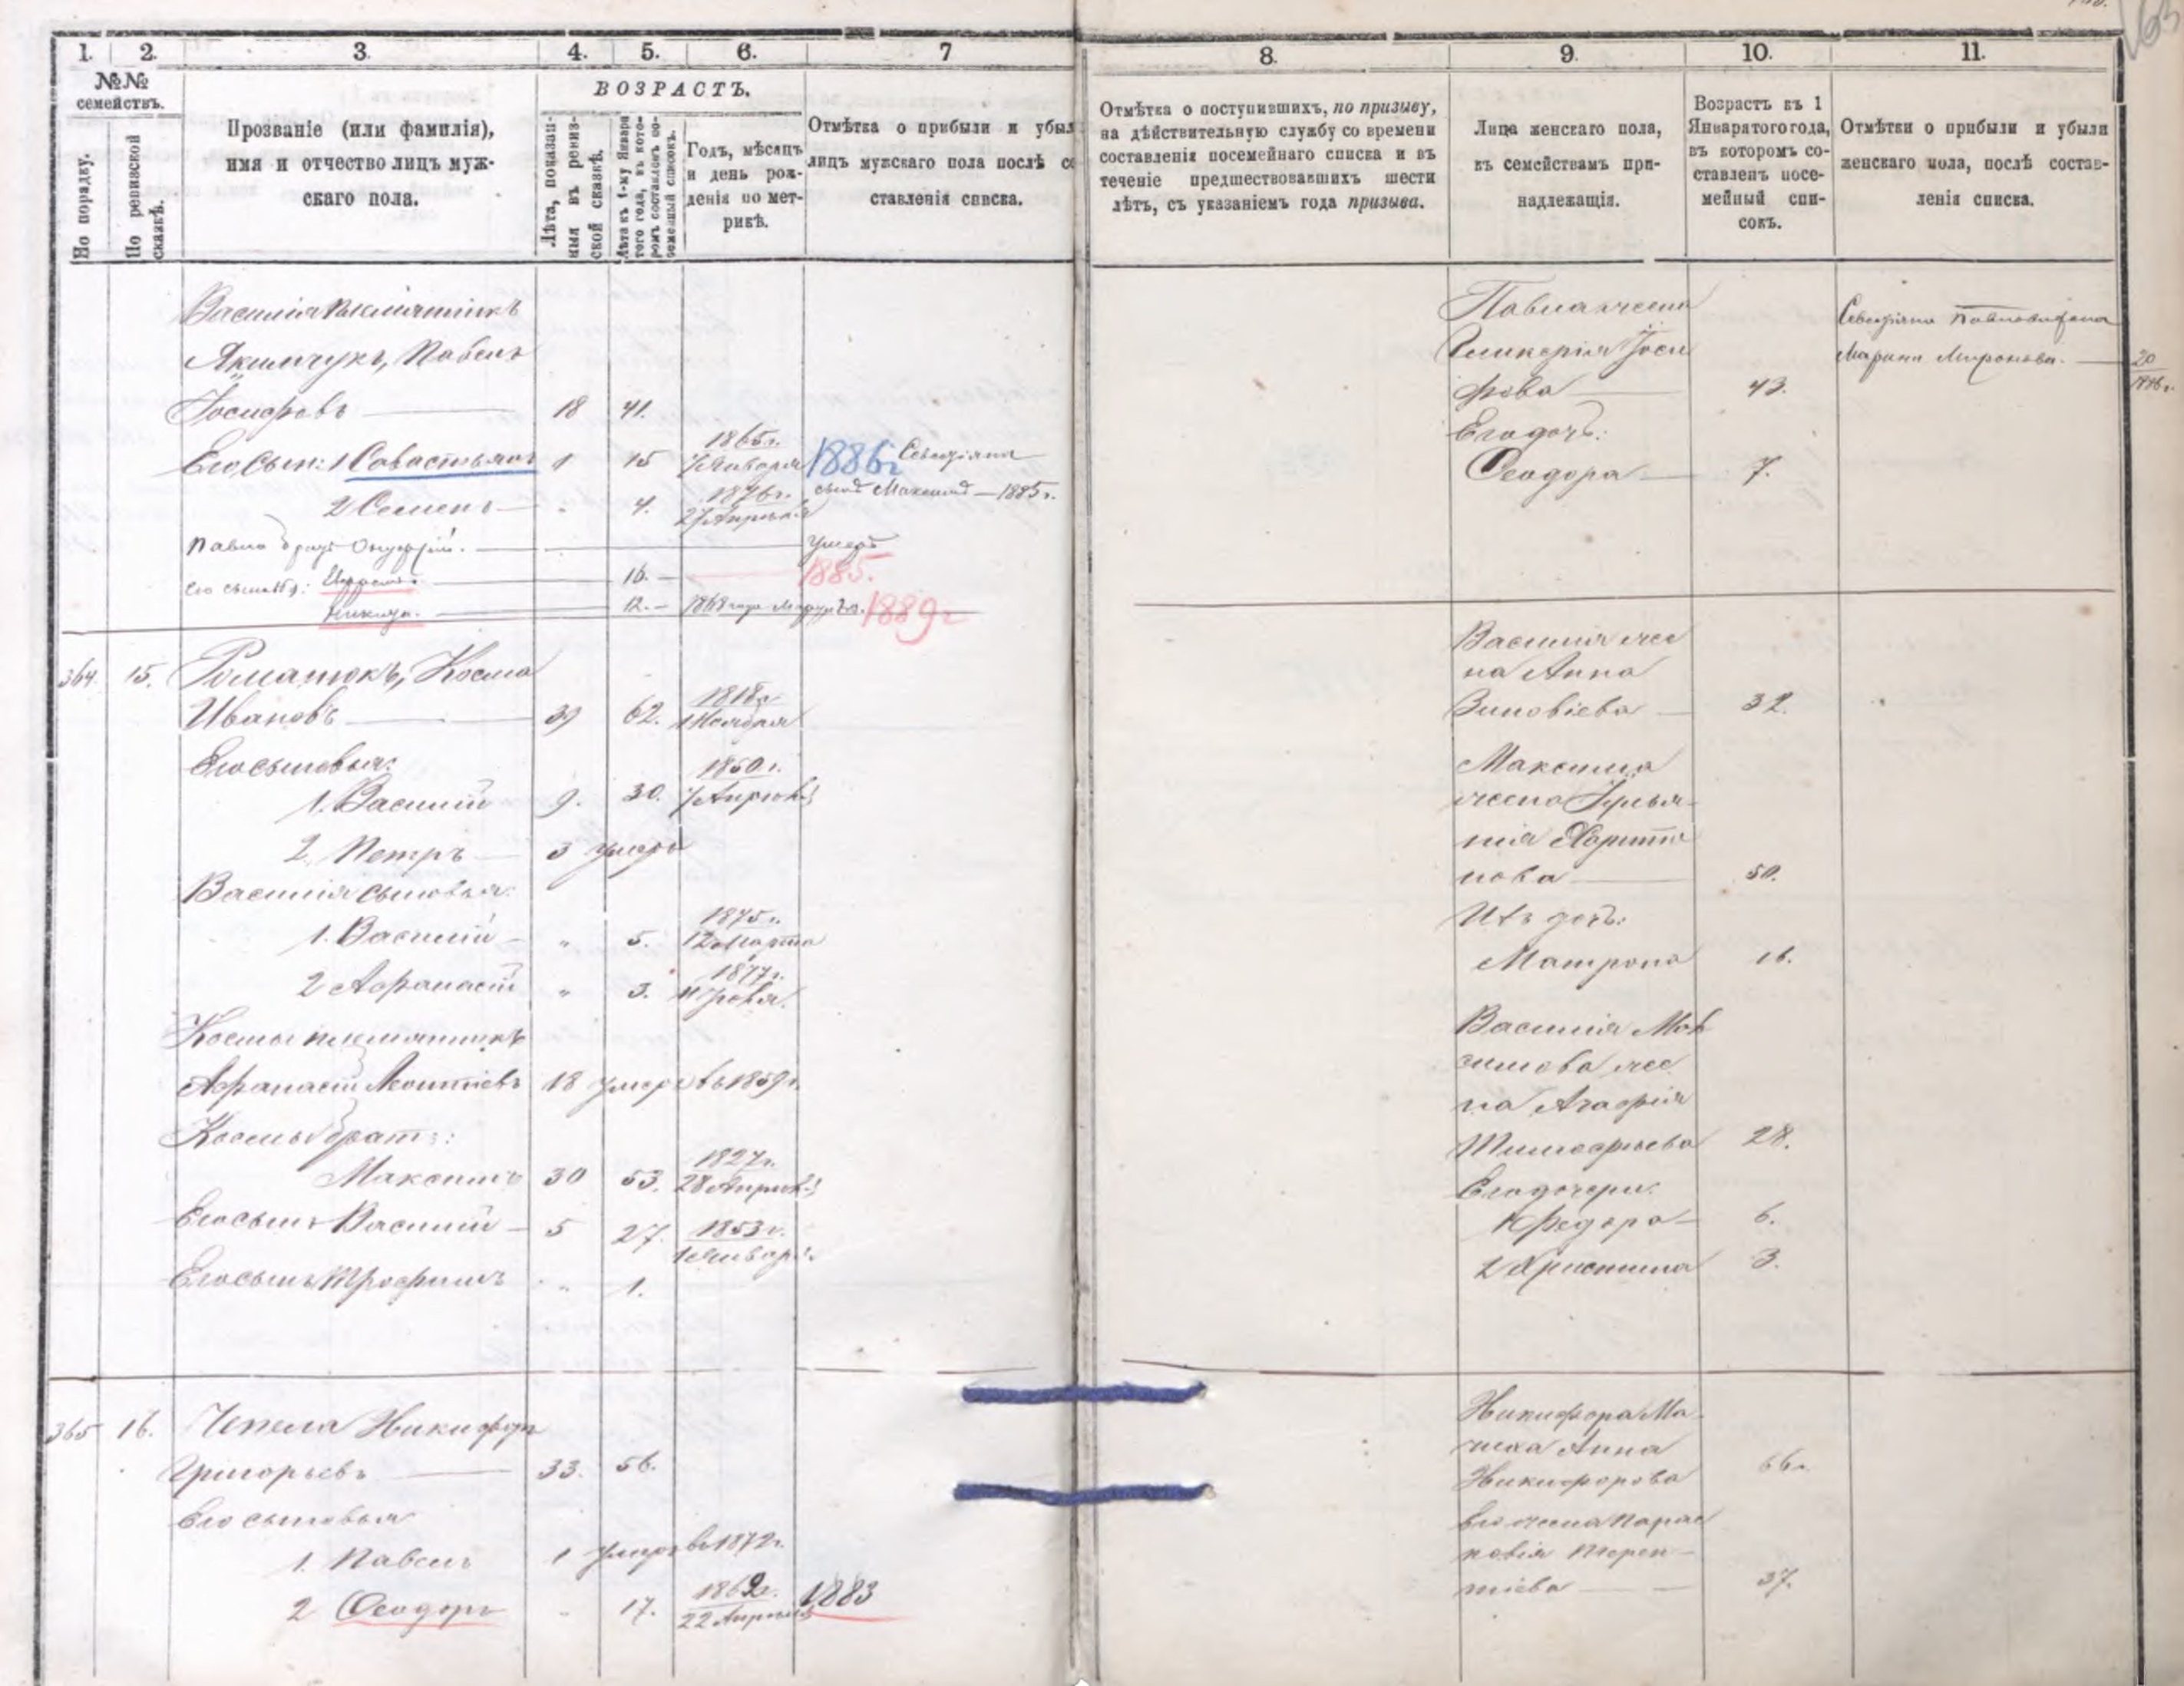 1. 2. 3. 4. 5. 6. 7
№№ семействъ.
По порядку.
По ревизской сказкѣ.
Прозваніе (или фамилія),
имя и отчество лицъ муж-
скаго пола.
ВОЗРАСТЪ.
Лѣта, показан-
ныя въ ревиз-
ской сказкѣ.
Лѣта къ 1-му Января
того года, въ кото-
ромъ составленъ по-
семейный списокъ.
Годъ, мѣсяцъ
и день рож-
денія по мет-
рикѣ.
Отмѣтка о прибыли и убыл
лицъ мужскаго пола послѣ со
ставленія списка.
Василія племянникъ
Якимчукъ, Павелъ
Іосифовъ 18 41.
Его сын: 1 Савостьянъ 1 15 1865 г. 7 Января 1886 г
сынъ Максимъ — 1885 г.
2 Семенъ „ 4. 1876 г. 27 Апрѣля
Павла братъ Онуфрій. умеръ
Его сыновья: 16. — 1885.
Никита. 12. — 1868 года 1889 г
364. 15. Романюкъ, Косма
Ивановъ 39 62. 1818 г 1 Ноября
Его сыновья:
1. Василій 9. 30. 1850 г. 7 Апрѣля
2. Петръ 3 умеръ
Василія сыновья:
1. Василій „ 5. 1875 г. 12 Марта
2 Афанасій „ 3. 1877 г.
Космы племянникъ
Афанасій Леонтіевъ 18 умеръ въ 1859 г.
Космы братъ:
Максимъ 30 53. 1827 г. 28 Апрѣля
Его сынъ Василій 5 27. 1853 г. 1 Января
Его сынъ Трофимъ „ 1.
365 16. Чепела Никифоръ
Григорьевъ 33. 56.
Его сыновья
1. Павелъ 1 умеръ въ 1872 г.
2 Ѳеодоръ „ 17. 1862 г. 22 Апрѣля 1883
8. 9. 10. 11.
Отмѣтка о поступившихъ, по призыву,
на дѣйствительную службу со времени
составленія посемейнаго списка и въ
теченіе предшествовавшихъ шести
лѣтъ, съ указаніемъ года призыва.
Лица женскаго пола,
къ семействамъ при-
надлежащія.
Возрастъ къ 1
Января того года,
въ которомъ со-
ставленъ посе-
мейный спи-
сокъ.
Отмѣтки о прибыли и убыли
женскаго пола, послѣ состав-
ленія списка.
Павла жена
Гликерія Іоси
фова 43.
Марина Миронова. — 20
1886 г.
Его дочь:
Ѳеодора 7.
Василія же
на Анна
Зиновіева 32.
Максима
жена Улья-
нія Харито
нова 50.
Ихъ дочь:
Матрона 16.
Василія Мак
симова же
на Агафія
Тимофѣева 28.
Его дочери:
1 Федора 6.
2 Христина 3.
Никифора Ма-
чиха Анна
Никифорова 66.
Его жена Парас
ковія Терен-
тіева 37.